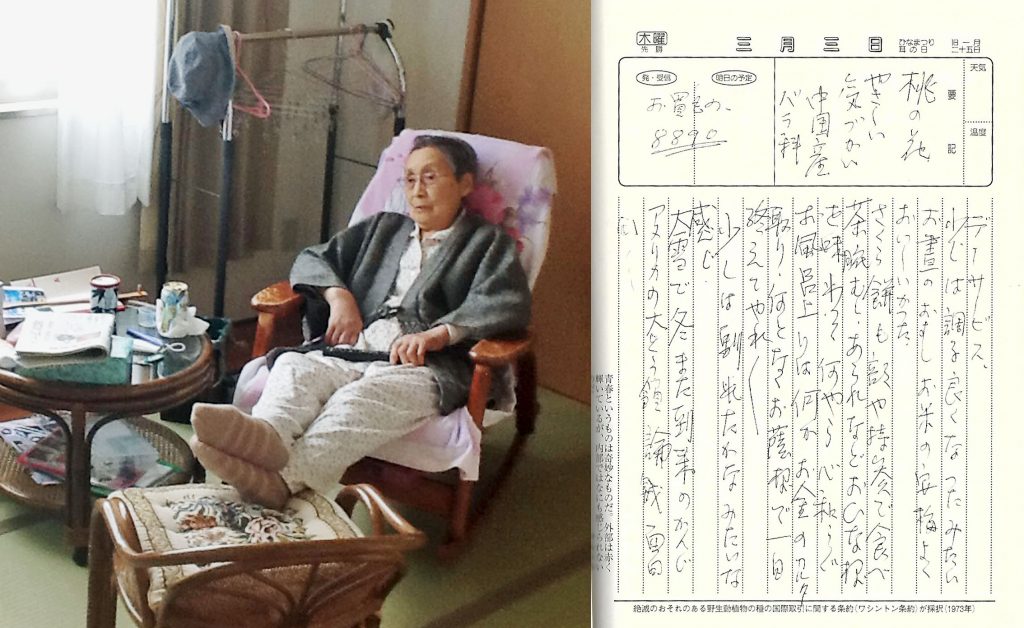 木曜
先勝
三月三日
ひなまつり
耳の日
旧一月
二十五日
天気
温度
要記
桃の花
やさしい
気づかい
中国産
バラ科
発・受信
明日の予定
お買もの、
8890
デーサービス、
少しは調子良くなったみたい
お昼のおすしお米の塩梅よく
おいしいかった
さくら餅も部や持参で食べ
茶腕むし、あられなどおひな様
を味わって何やら心和らぐ
お風呂上りは何かお金のカルタ
取り、何となくお蔭様で一日
終えてやれ〳〵
少しは馴れたかなみたいな
感じ
大雪で冬また到来のかんじ
アメリカの大とう領論戦面白
青春というものは奇妙なものだ。外部は赤く
輝いているが、内部ではなにも感じられない
絶滅のおそれのある野生動植物の種の国際取引に関する条約(ワシントン条約)が採択(1973年)